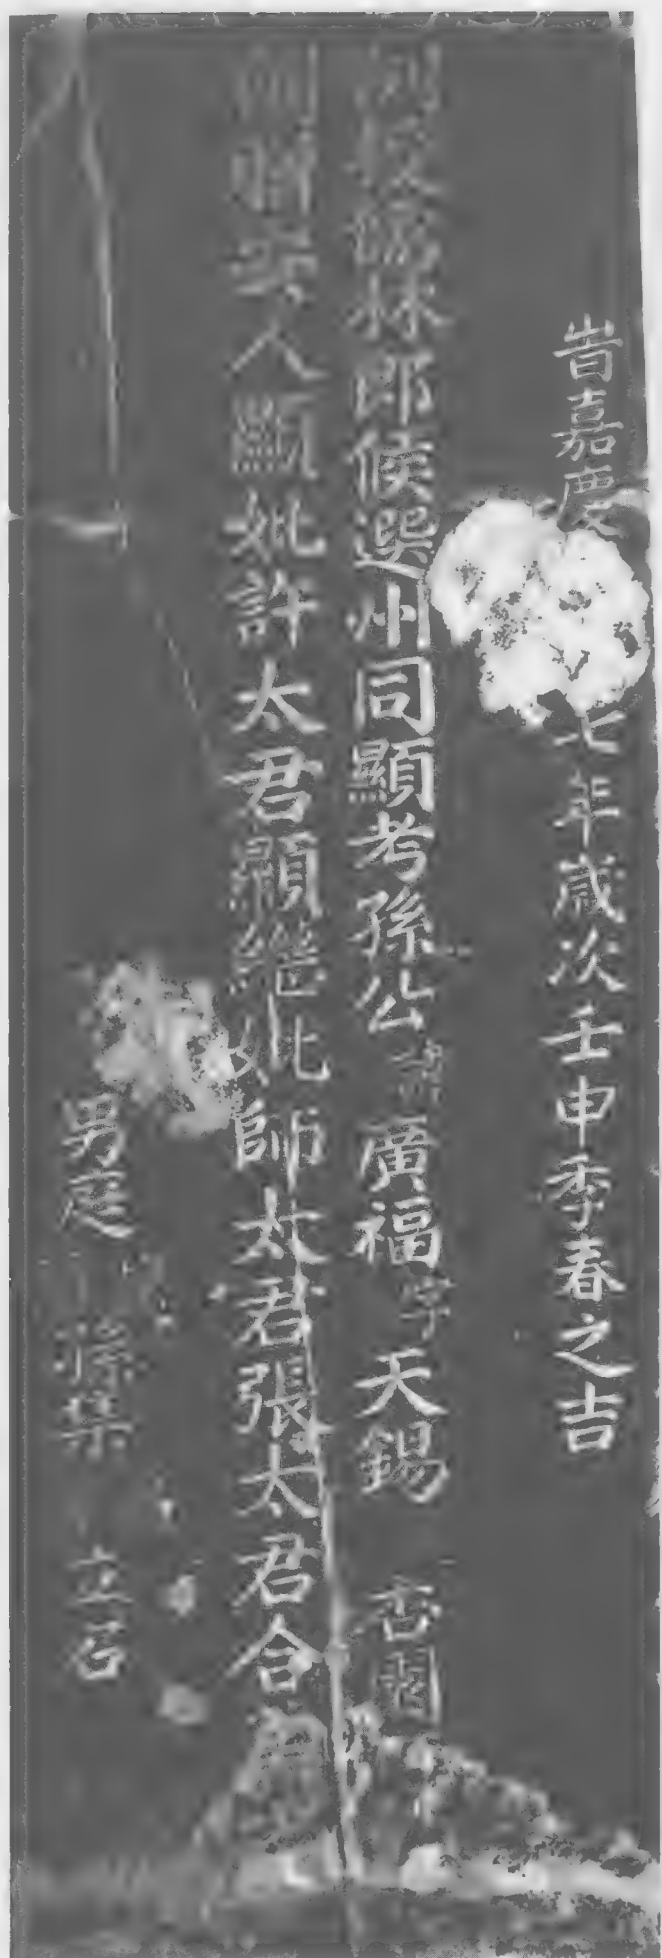 旹嘉慶七年歲次壬申季春之吉
例授儒林郎候選州同顯考孫公諱廣福字天錫
例贈安人顯妣許太君顯繼妣師太君張太君合
男廷 孫 立石